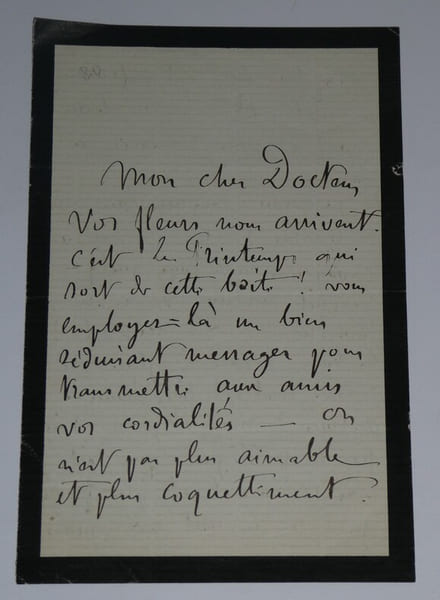 Mon cher Docteur
Vos fleurs nous arrivent.
C'est le Printemps qui
sort de cette boite ! Vous
employez-là un bien
séduisant messager pour
transmettre aux amis
vos cordialités — on
n'est pas plus aimable
et plus coquettement.